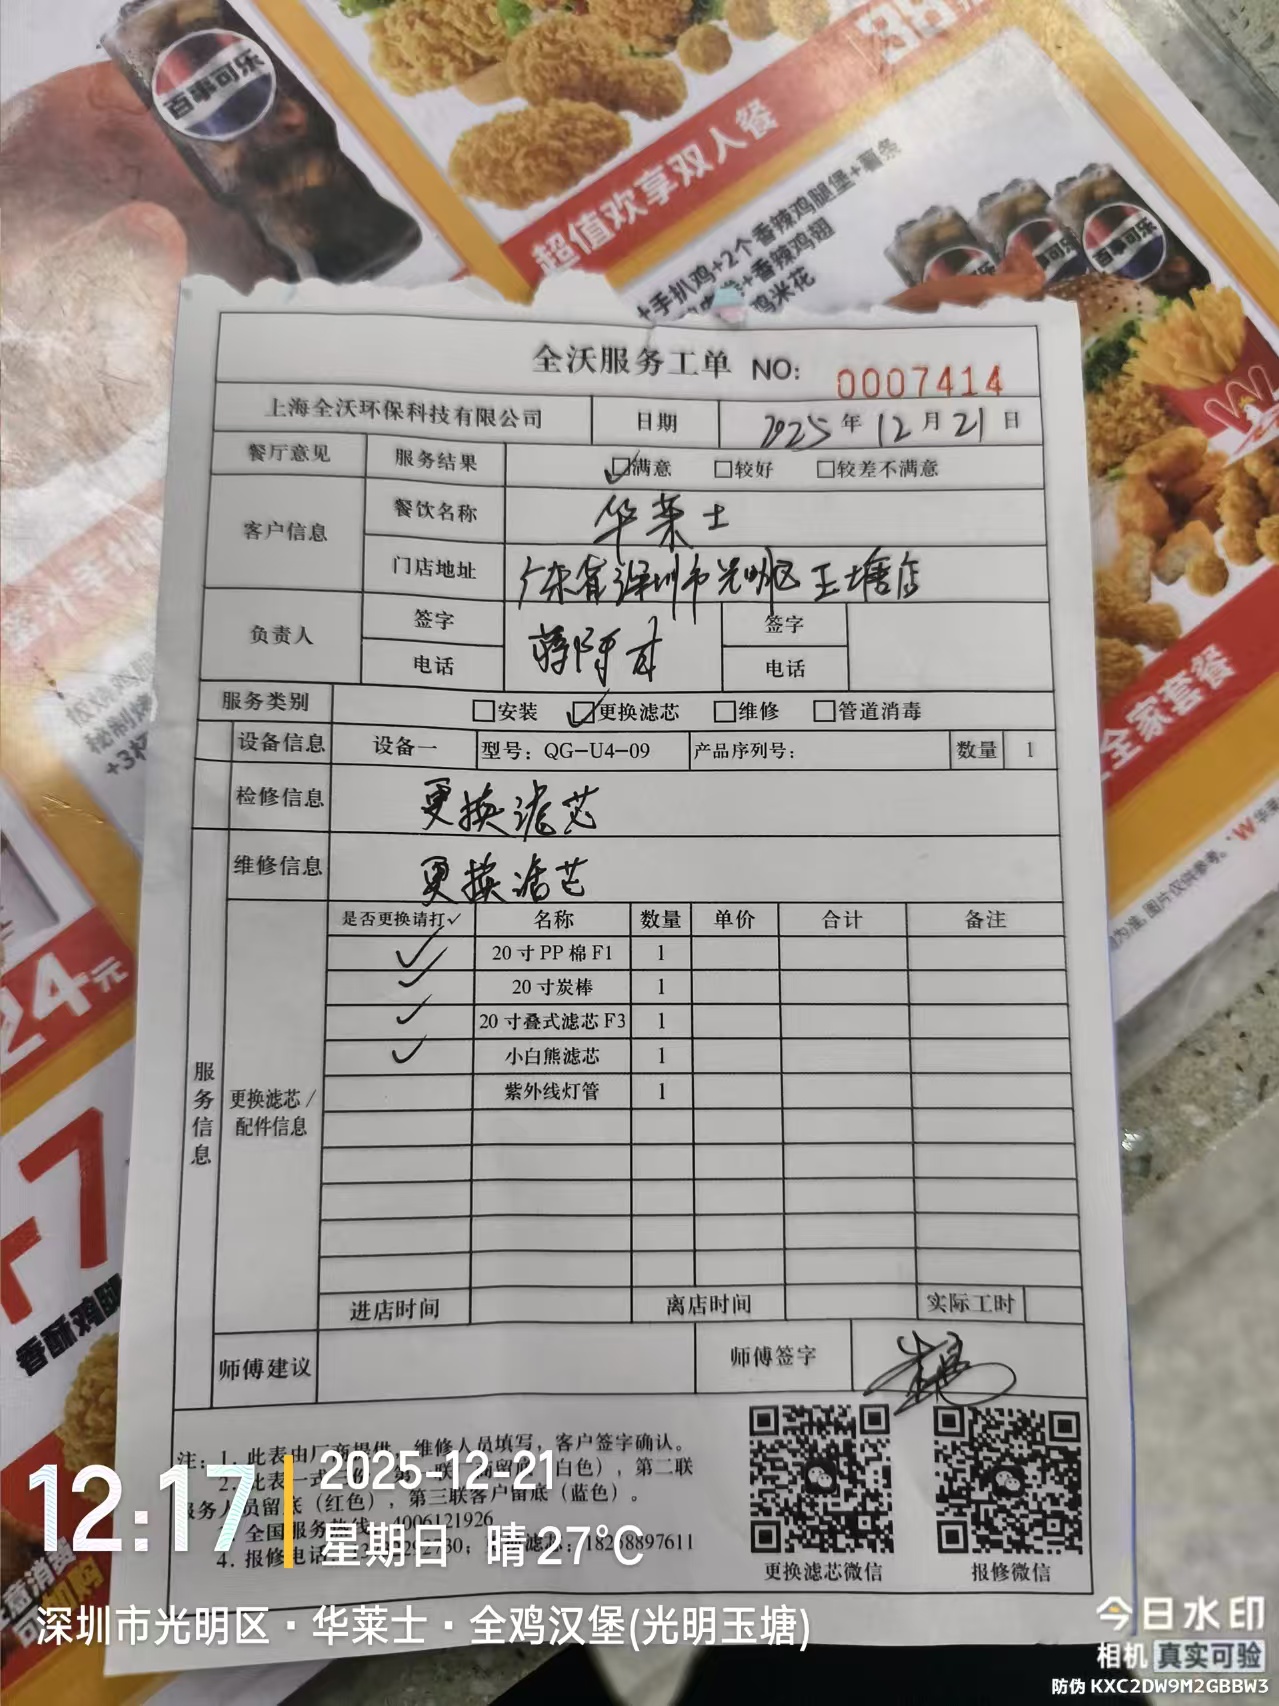 百事可乐
超值欢享双人餐
+手扒鸡+2个香辣鸡腿堡+薯条
+香辣鸡翅
鸡米花
百事可乐
全家套餐
24元
香酥鸡腿
全沃服务工单 NO: 0007414
上海全沃环保科技有限公司 日期 2025年12月21日
餐厅意见 服务结果 ☑满意 □较好 □较差不满意
客户信息 餐饮名称 华莱士
门店地址 广东省深圳市光明区玉塘店
负责人 签字 签字
电话 电话
服务类别 □安装 ☑更换滤芯 □维修 □管道消毒
设备信息 设备一 型号: QG-U4-09 产品序列号: 数量 1
检修信息 更换滤芯
维修信息 更换滤芯
服务信息
更换滤芯/配件信息
是否更换请打✓ 名称 数量 单价 合计 备注
✓ 20寸PP棉F1 1
✓ 20寸炭棒 1
✓ 20寸叠式滤芯F3 1
✓ 小白熊滤芯 1
紫外线灯管 1
进店时间 离店时间 实际工时
师傅建议 师傅签字
注: 1. 此表由厂商提供,维修人员填写,客户签字确认。
2. 此表一式 白色), 第二联
服务人员留底(红色), 第三联客户留底(蓝色)。
全国服务热线 4006121926
4. 报修电话 18258897611
更换滤芯微信 报修微信
12:17 2025-12-21
星期日 晴 27℃
深圳市光明区·华莱士·全鸡汉堡(光明玉塘)
今日水印
相机 真实可验
防伪 KXC2DW9M2GBBW3